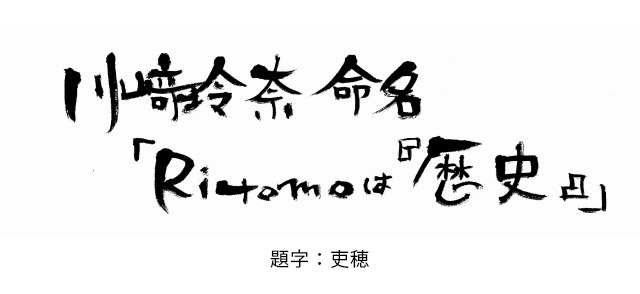 川﨑玲奈 命名
「Ritomoは『歴史』」
題字：吏穂